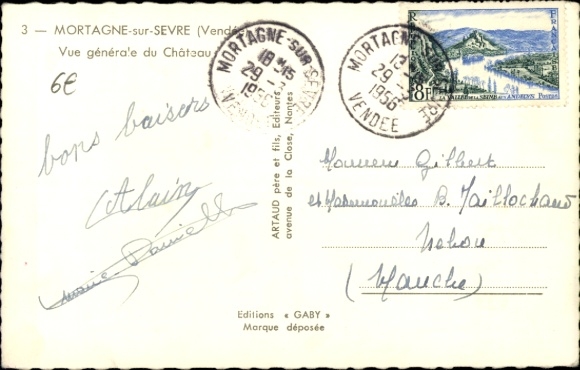 3 — MORTAGNE-sur-SEVRE (Vendé
Vue générale du Château
6€
bons baisers
Alain
Danielle
ARTAUD père et fils, Editeurs
avenue de la Close, Nantes
MORTAGNE-SUR-SEVRE
18 H 15
29 - 7
1956
VENDEE
MORTAGNE-SUR-SEVRE
29
1956
VENDEE
8F
LA VALLEE DE LA SEINE AUX ANDELYS POSTES
Monsieur Gilbert
et Mesdemoiselles B. Taillochaud
(Manche)
Editions « GABY »
Marque déposée